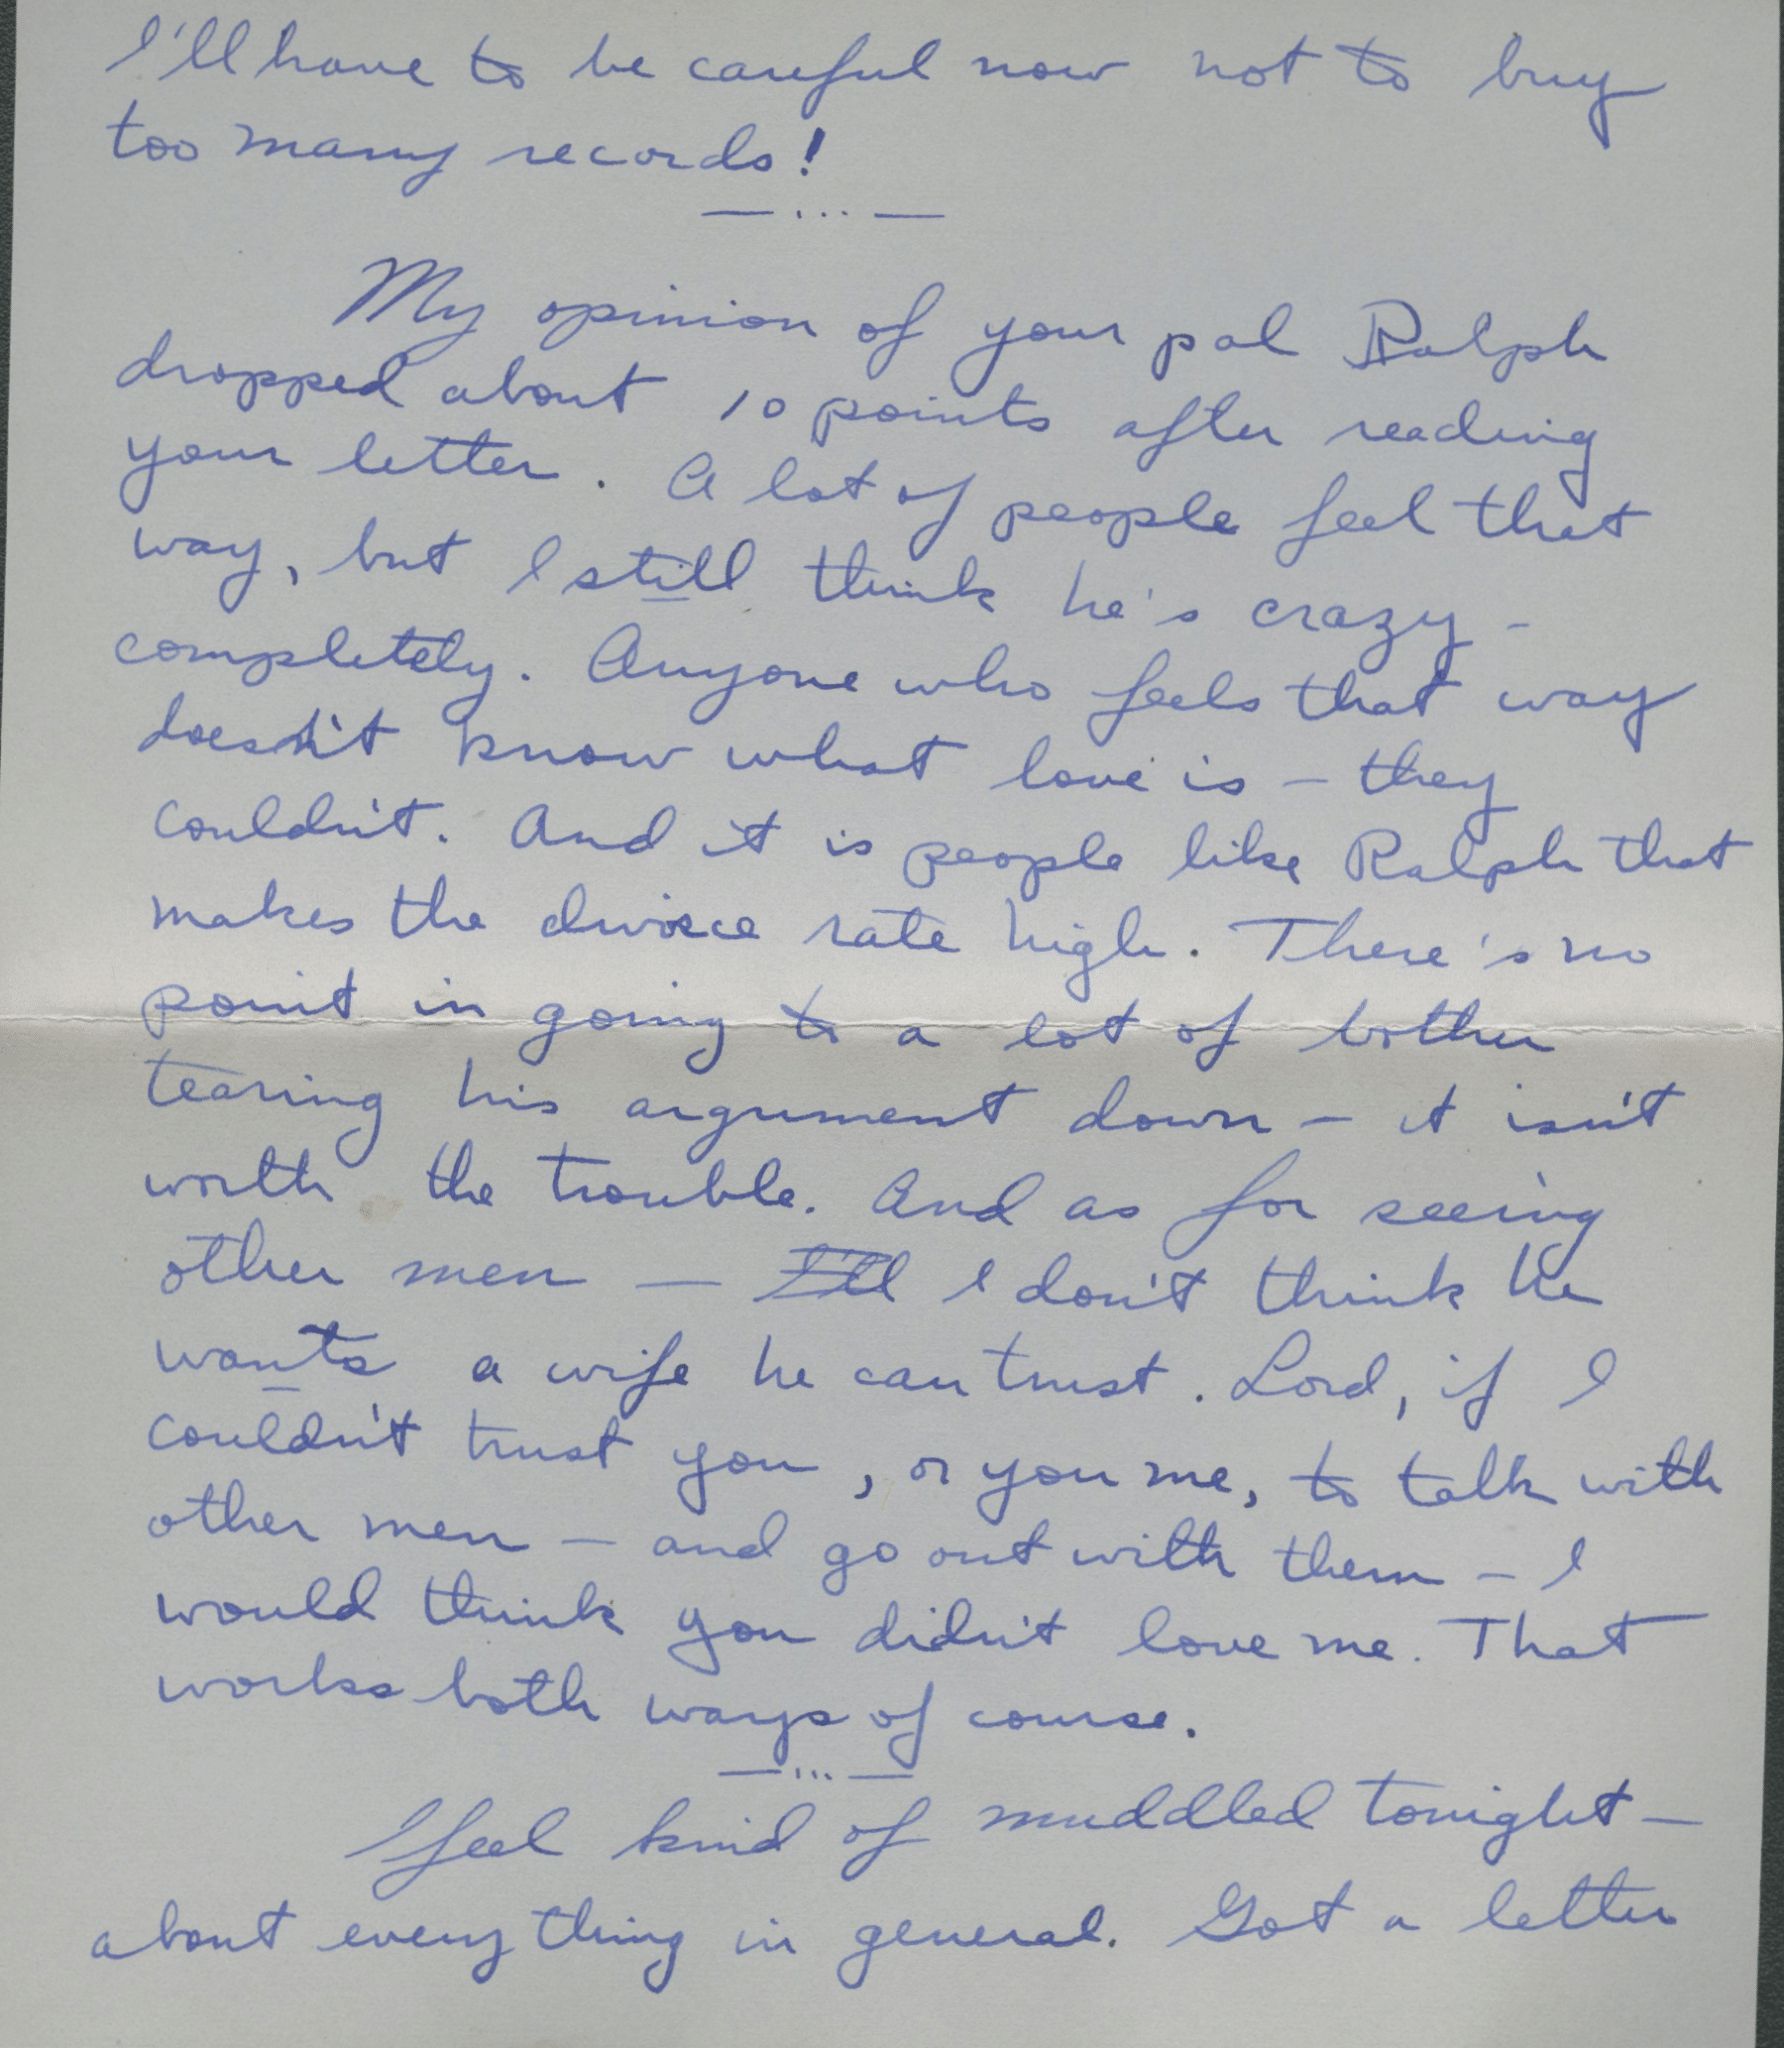 I'll have to be careful now not to buy
too many records!
— ... —
My opinion of your pal Ralph
dropped about 10 points after reading
your letter. A lot of people feel that
way, but I still think he's crazy -
completely. Anyone who feels that way
doesn't know what love is - they
couldn't. And it is people like Ralph that
makes the divorce rate high. There's no
point in going to a lot of bother
tearing his argument down - it isn't
worth the trouble. And as for seeing
other men — I'll I don't think he
wants a wife he can trust. Lord, if I
couldn't trust you, or you me, to talk with
other men - and go out with them - I
would think you didn't love me. That
works both ways of course.
— ... —
I feel kind of muddled tonight -
about everything in general. Got a letter